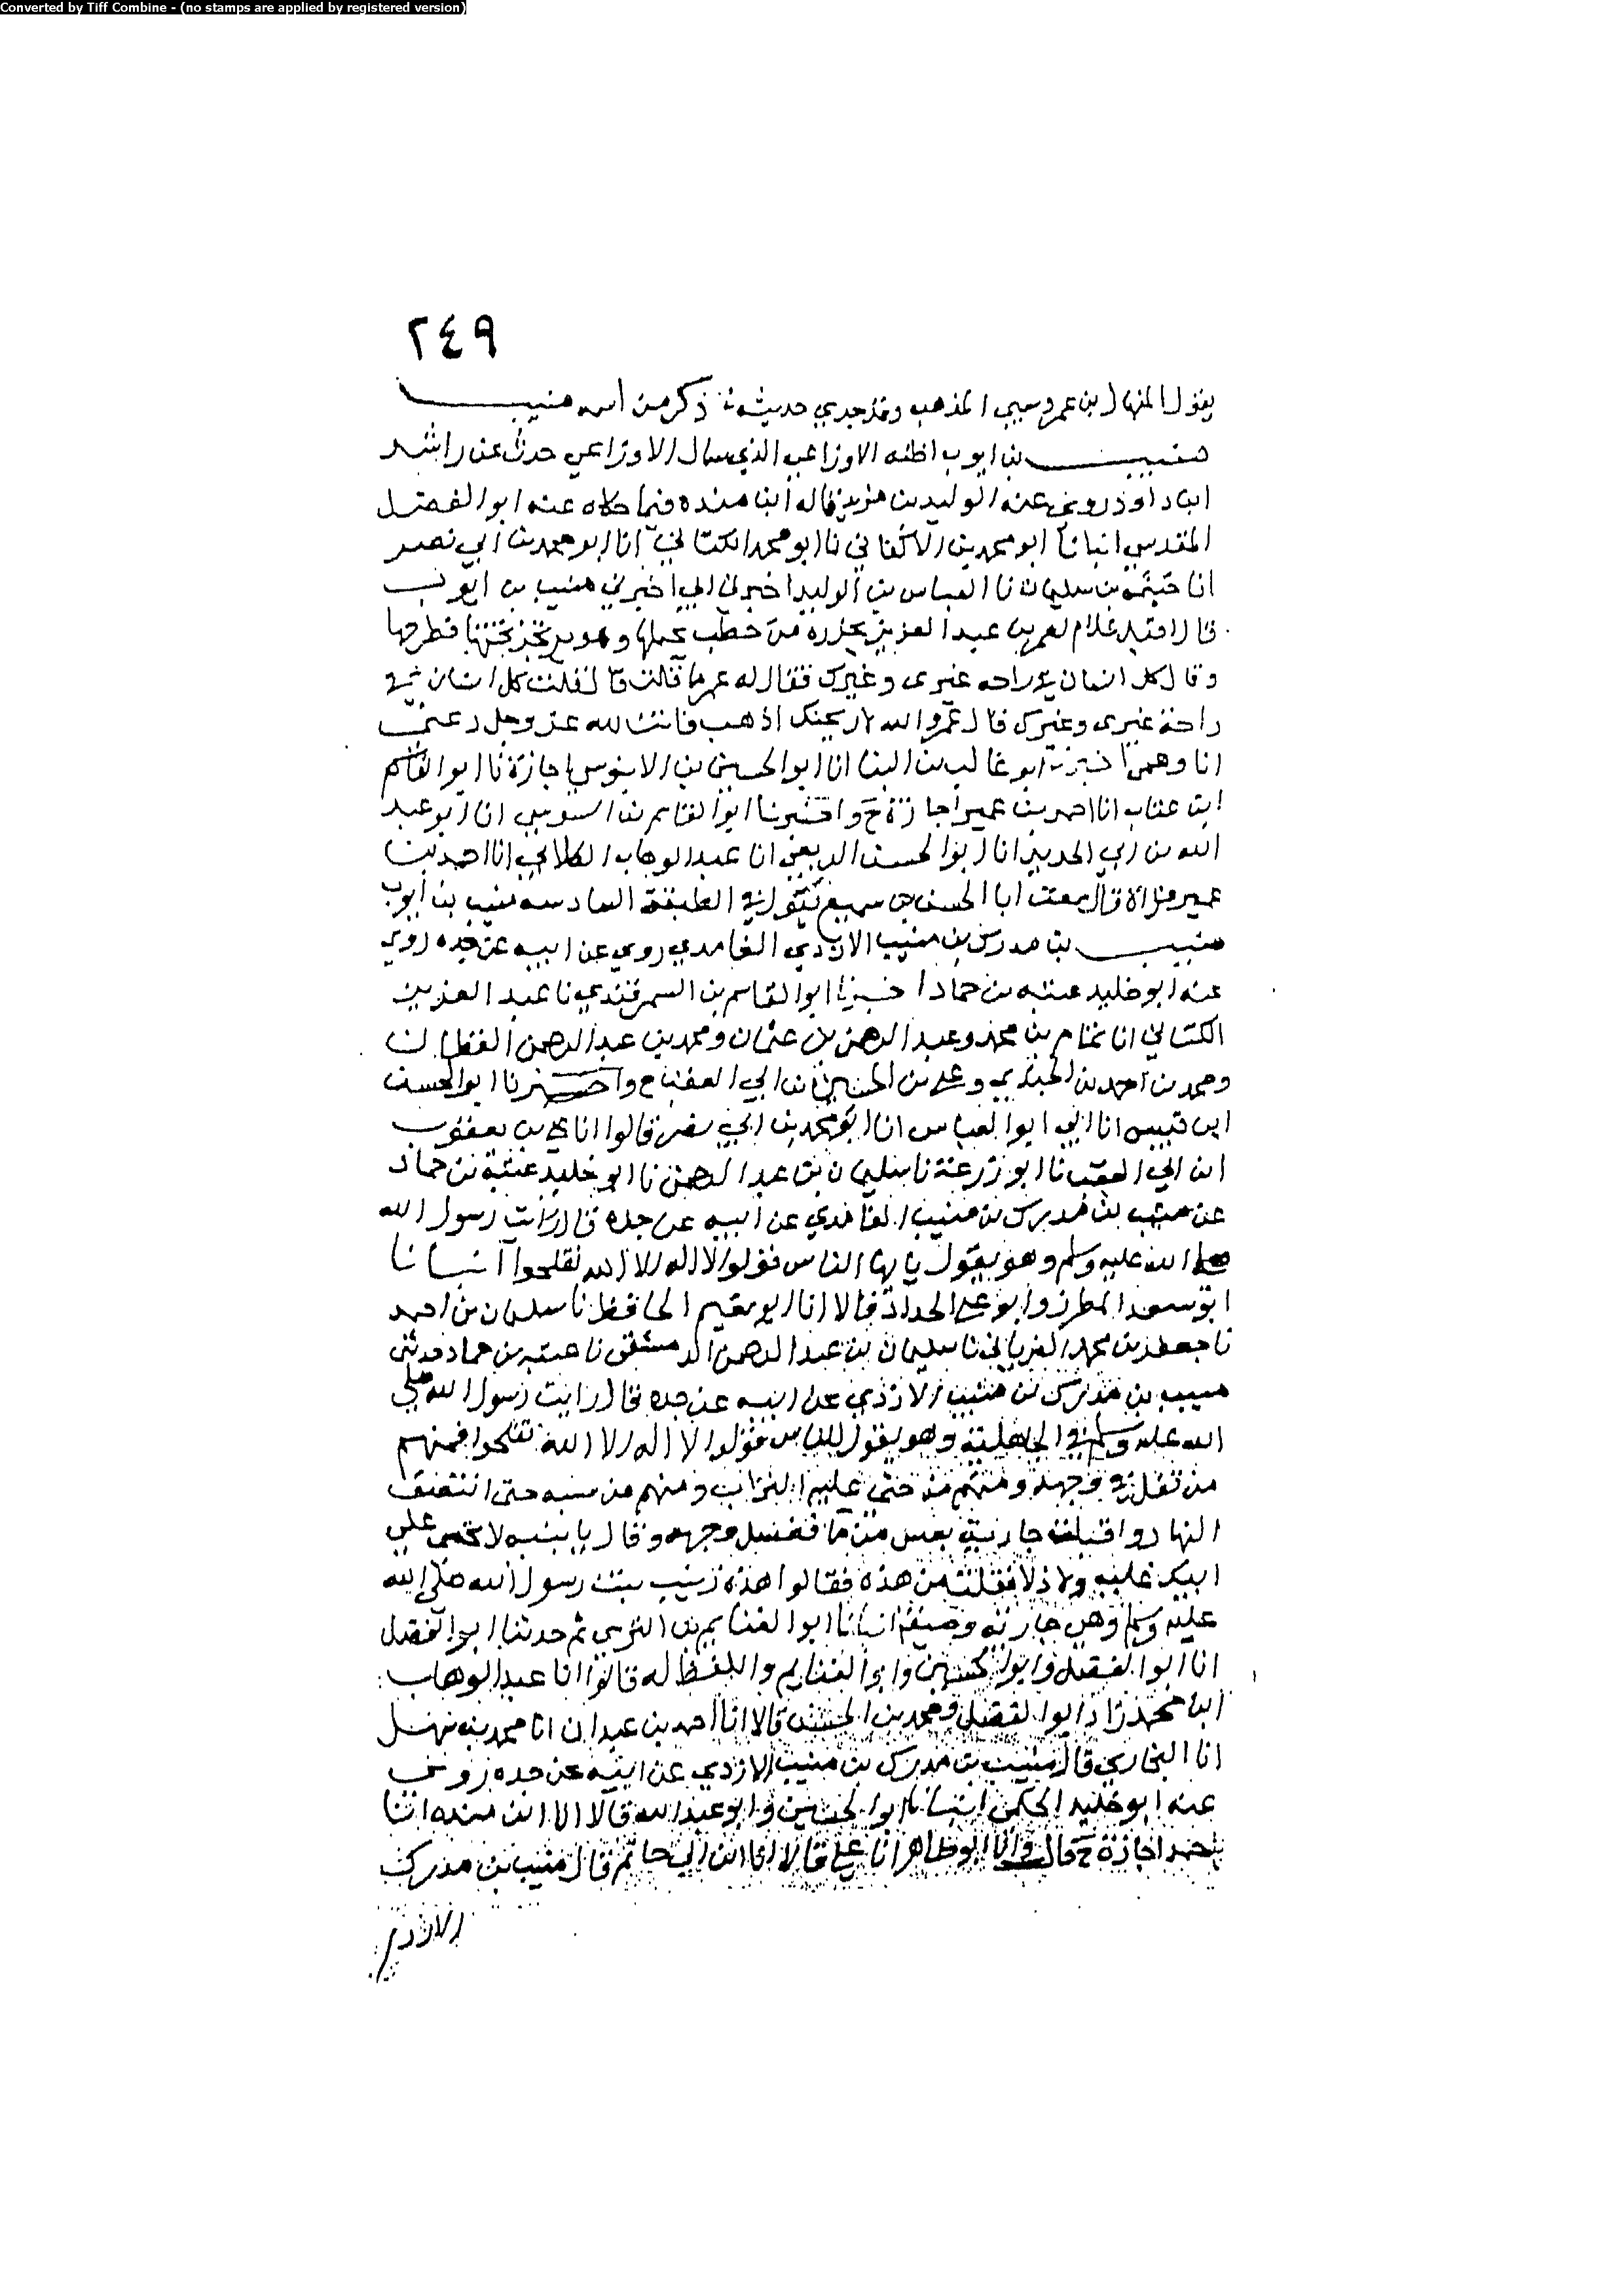 Converted by Tiff Combine - (no stamps are applied by registered version)
٢٤٩
يقول المنهال بن عمرو سيى المذهب وقد جرى حديثه ذكر من اسمه منيب
منيب بن ايوب اظنه الاوزاعي الذي سال الاوزاعي حدث عن راشد
ابن داود روى عنه الوليد بن مزيد قاله ابن منده فيما حكاه عنه ابو الفضل
المقدسي انبانا ابو محمد بن الاكفاني نا ابو محمد الكتاني انا ابو محمد بن ابي نصر
انا خيثمة بن سليمان نا العباس بن الوليد اخبرني ابي اخبرني منيب بن ايوب
قال اقبل غلام لعمر بن عبد العزيز بحزرة من حطب يحملها وهو فطرحها
وقال كل انسان في راحه غيرى وغيرك فقال له عمر ما قلت قال قلت كل انسان في
راحة غيرى وغيرك قال عمر والله لاريحنك اذهب فانت لله عز وجل دعني
انا وهمي اخبرنا ابو غالب بن البنا انا ابو الحسين بن الابنوسي اجازة نا ابو القاسم
ابن عتاب انا احمد بن عمير اجازة ح واخبرنا ابو القاسم بن السوسي انا ابو عبد
الله بن ابي الحديد انا ابو الحسن الربعي انا عبد الوهاب الكلابي انا احمد بن
عمير قراة قال سمعت ابا الحسن بن سميع يقول في الطبقة السادسه منيب بن ايوب
منيب بن مدرك بن منيب الازدي الغامدي روى عن ابيه عن جده روى
عنه ابو خليد عتبه بن حماد اخبرنا ابو القاسم بن السمرقندي نا عبد العزيز
الكتاني انا تمام بن محمد وعبد الرحمن بن عثمان ومحمد بن عبد الرحمن القطان
ومحمد بن احمد بن الجندي وعلي بن الحسين بن ابي العقب ح واخبرنا ابو الحسن
ابن قبيس انا ابي ابو العباس انا ابو محمد بن ابي نصر قالوا انا علي بن يعقوب
ابن ابي العقب نا ابو زرعة نا سليمان بن عبد الرحمن نا ابو خليد عتبة بن حماد
عن منيب بن مدرك بن منيب الغامدي عن ابيه عن جده قال رايت رسول الله
صلى الله عليه وسلم وهو يقول يا ايها الناس قولوا لا اله الا الله تفلحوا انبانا
ابو سعد المطرز وابو علي الحداد قالا انا ابو نعيم الحافظ نا سليمان بن احمد
نا جعفر بن محمد الفريابي نا سليمان بن عبد الرحمن الدمشقي نا عتبه بن حماد حدثني
منيب بن مدرك بن منيب الازدي عن ابيه عن جده قال رايت رسول الله صلى
الله عليه وسلم في الجاهلية وهو يقول للناس قولوا لا اله الا الله تفلحوا فمنهم
من تفل في وجهه ومنهم من حثى عليه التراب ومنهم من سبه حتى انتصف
النهار واقبلت جارية بعس من ما فغسل وجهه وقال يا بنيه لا تخشى على
ابيك غلبه ولا ذلا فقلت من هذه فقالوا هذه زينب بنت رسول الله صلى الله
عليه وسلم وهي جارية وصيفة انبانا ابو الغنايم بن النرسي ثم حدثنا ابو الفضل
انا ابو الفضل وابو الحسين وابو الغنايم واللفظ له قالوا انا عبد الوهاب
ابن محمد زاد ابو الفضل ومحمد بن الحسن قالا انا احمد بن عبدان انا محمد بن سهل
انا البخاري قال منيب بن مدرك بن منيب الازدي عن ابيه عن جده روى
عنه ابو خليد الحكمي انبانا ابو الحسين وابو عبد الله قالا انا ابن منده انا
حمد اجازة ح قال وانا ابو طاهر انا علي قالا انا ابن ابي حاتم قال منيب بن مدرك
الازدي